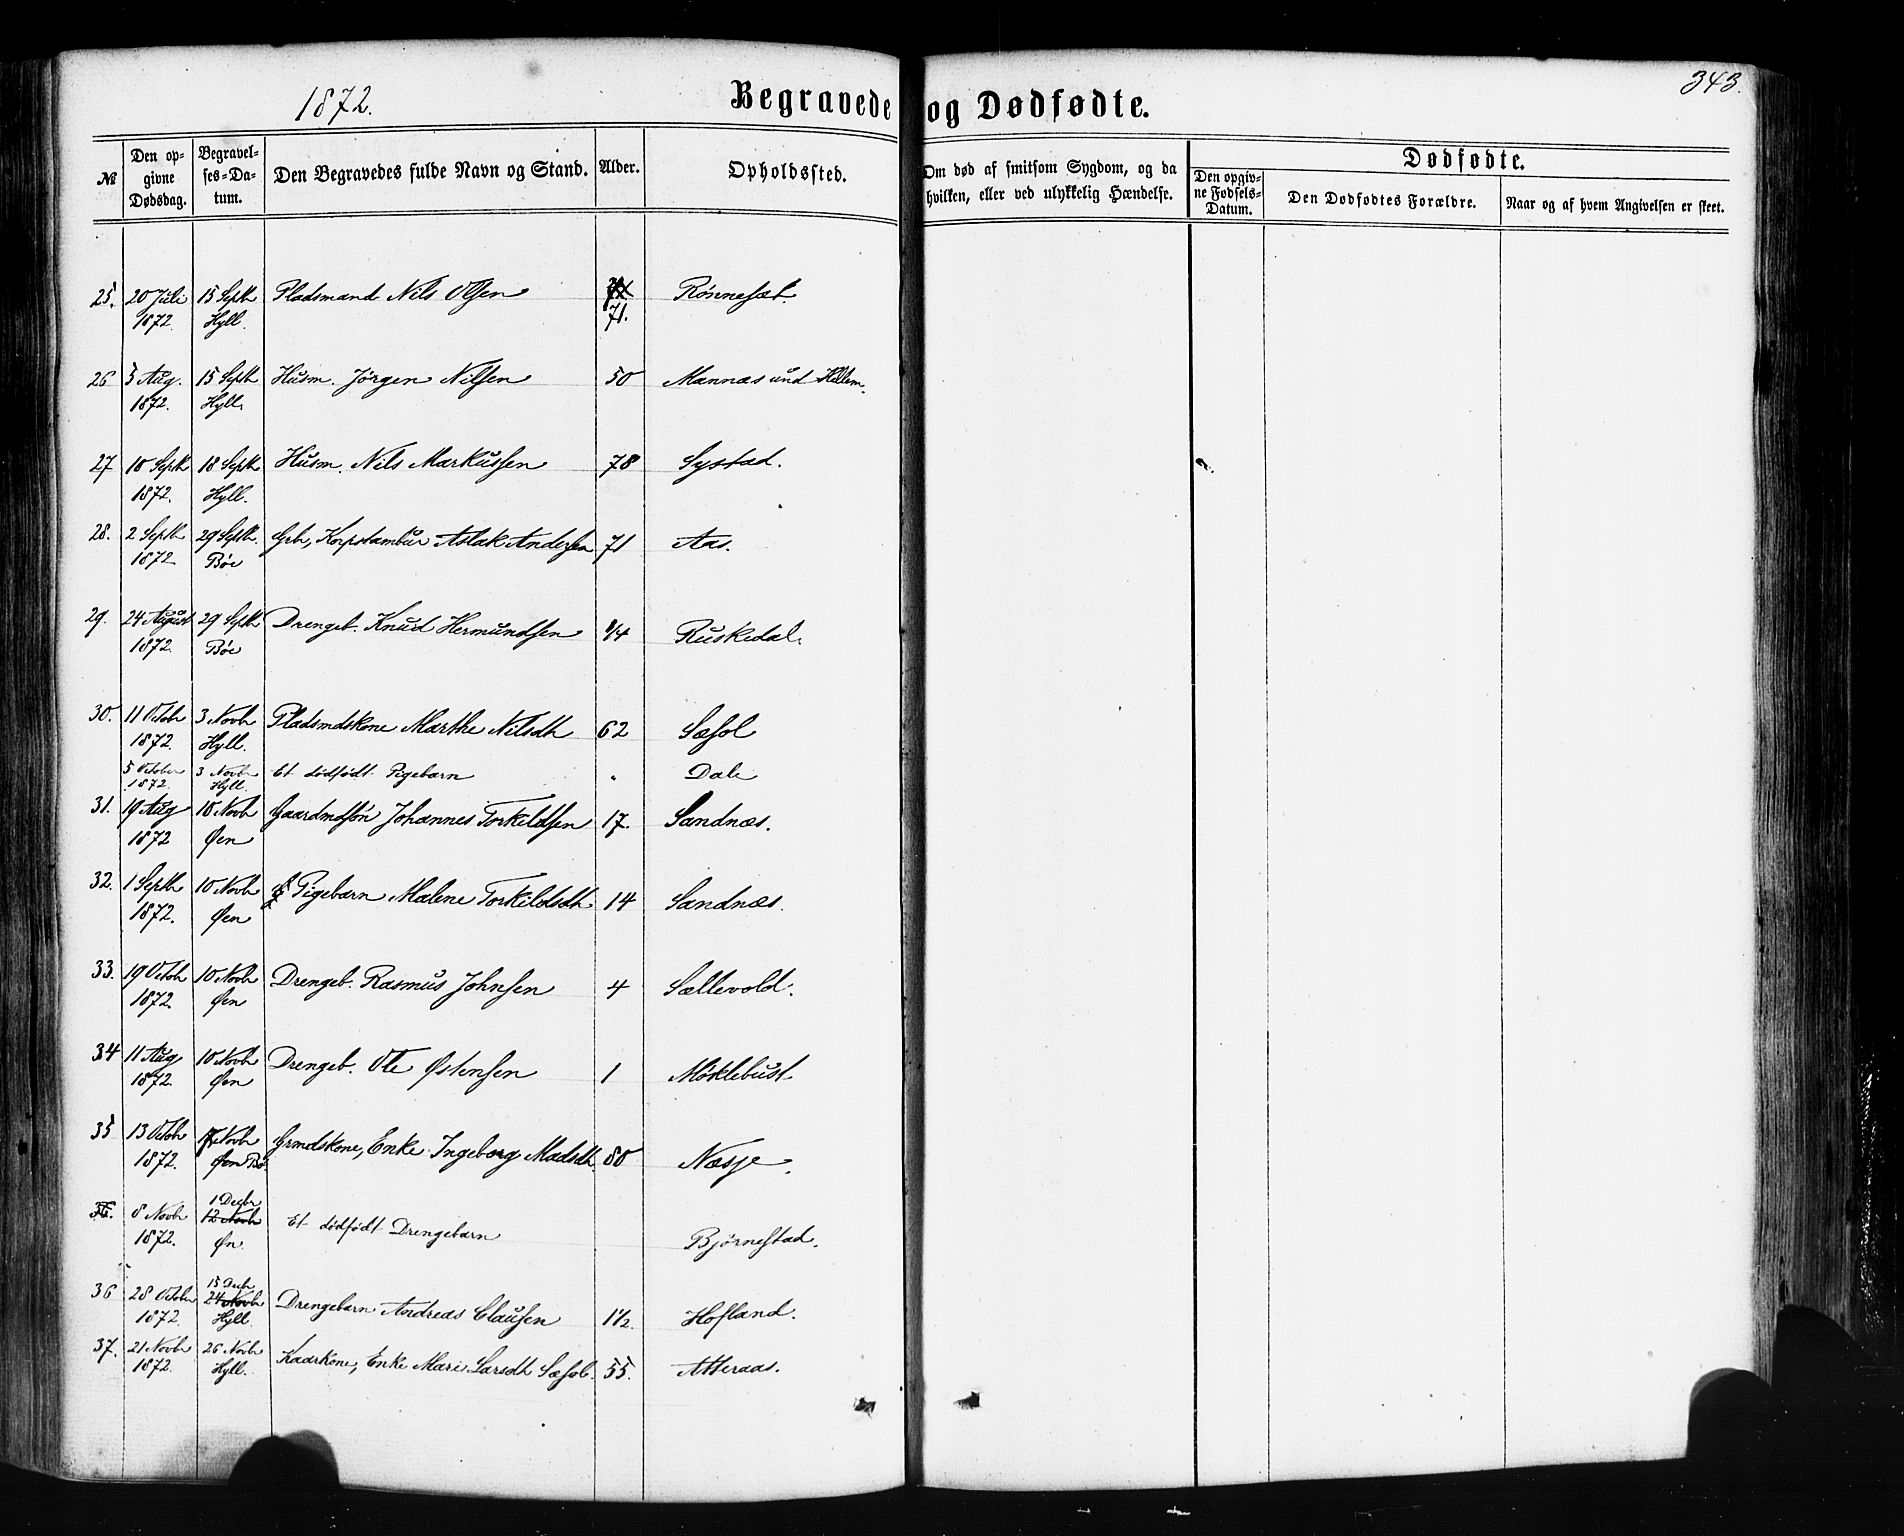 1872.
Begravede og Dødfødte.
343.
№
Den opgivne Dødsdag.
Begravelses-Datum.
Den Begravedes fulde Navn og Stand.
Alder.
Opholdssted.
Om død af smitsom Sygdom, og da hvilken, eller ved ulykkelig Hændelse.
Dødfødte.
Den opgivne Fødsels-Datum.
Den Dødfødtes Forældre.
Naar og af hvem Angivelsen er skeet.
25. 20 Juli 15 Septb Pladsmand Nils Olsen Rönnesæt.
1872. Hyll. 71.
26 5 Aug. 15 Septb Husm. Jörgen Nilsen 50 Mannæs und Hellem.
1872. Hyll.
27 10 Septb 18 Septb Husm. Nils Markussen 78 Systad.
1872. Hyll.
28. 2 Septb 29 Septb. Grb, Korpstambur Aslak Andersen 71 Aas.
1872 Böe
29. 24 August 29 Septb Drengeb. Knud Hermundsen 1/4 Ruskedal.
1872. Böe
30. 11 Octobr 3 Novbr Pladsmdskone Marthe Nilsdtr 62 Sæsol
1872. Hyll.
5 October 3 Novbr Et dödfödt Pigebarn " Dale
1872. Hyll.
31. 19 Aug 10 Novbr Gaardmdsön Johannes Torkildsen 17. Sandnæs.
1872 Øen
32. 1 Septb 10 Novbr Pigebarn Malene Torkildsdtr 14 Sandnæs.
1872. Øen
33. 19 Octobr 10 Novbr Drengeb. Rasmus Johnsen 4 Sællevold.
1872. Øen
34 11 Aug 10 Novbr Drengeb. Ole Østensen 1 Möklebust
1872. Øen
35 13 Octobr Novbr Grmdskone, Enke Ingeborg Madsdtr. 80 Næsje.
1872. Øen Bö
1 Decbr
36. 8 Novbr 12 Novbr Et dödfödt Drengebarn Björnestad.
1872. Øn
15 Decbr
36 28 October 24 Novbr Drengebarn Andreas Clausen 1 1/2. Hofland.
1872. Hyll.
37. 21 Novbr 26 Novbr Kaarkone, Enke Mari Larsdtr Sæsol. 55. Atteraas.
1872. Hyll.